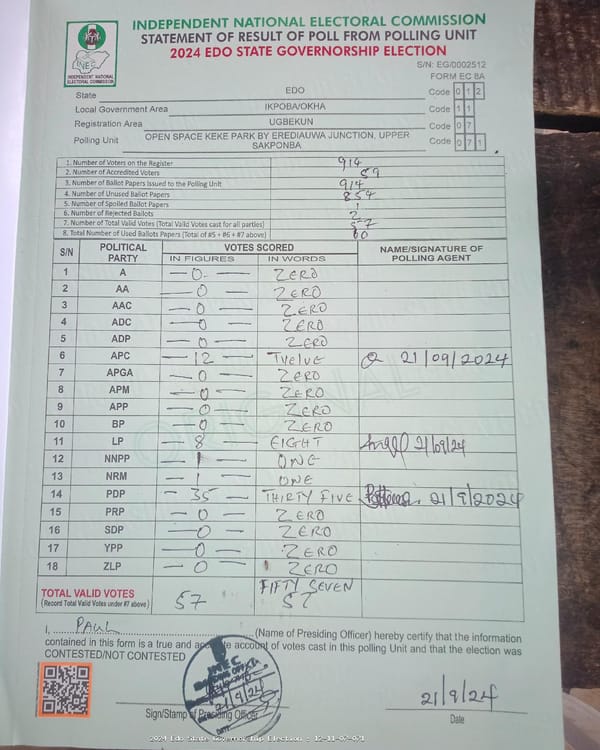 INDEPENDENT NATIONAL ELECTORAL COMMISSION
STATEMENT OF RESULT OF POLL FROM POLLING UNIT
2024 EDO STATE GOVERNORSHIP ELECTION
INEC
INDEPENDENT NATIONAL ELECTORAL COMMISSION
S/N: EG/0002512
FORM EC 8A
State EDO Code 0 1 2
Local Government Area IKPOBA/OKHA Code 1 1
Registration Area UGBEKUN Code 0 7
Polling Unit OPEN SPACE KEKE PARK BY EREDIAUWA JUNCTION, UPPER SAKPONBA Code 0 7 1
1. Number of Voters on the Register 914
2. Number of Accredited Voters 59
3. Number of Ballot Papers Issued to the Polling Unit 914
4. Number of Unused Ballot Papers 854
5. Number of Spoiled Ballot Papers 1
6. Number of Rejected Ballots 2
7. Number of Total Valid Votes (Total Valid Votes cast for all parties) 57
8. Total Number of Used Ballots Papers (Total of #5 + #6 + #7 above) 60
S/N POLITICAL PARTY VOTES SCORED NAME/SIGNATURE OF POLLING AGENT
IN FIGURES IN WORDS
1 A — 0 — ZERO
2 AA — 0 — ZERO
3 AAC — 0 — ZERO
4 ADC — 0 — ZERO
5 ADP — 0 — ZERO
6 APC — 12 — Twelve 21/09/2024
7 APGA — 0 — ZERO
8 APM — 0 — ZERO
9 APP — 0 — ZERO
10 BP — 0 — ZERO
11 LP — 8 — EIGHT 21/09/24
12 NNPP — 1 — ONE
13 NRM — 1 — ONE
14 PDP — 35 — THIRTY FIVE 21/9/2024
15 PRP — 0 — ZERO
16 SDP — 0 — ZERO
17 YPP — 0 — ZERO
18 ZLP — 0 — ZERO
TOTAL VALID VOTES 57 FIFTY SEVEN
(Record Total Valid Votes under #7 above) 57
I, PAUL (Name of Presiding Officer) hereby certify that the information
contained in this form is a true and accurate account of votes cast in this polling Unit and that the election was
CONTESTED/NOT CONTESTED
INEC
21/9/24
Sign/Stamp of Presiding Officer
21/9/24
Date
2024 Edo State Governorship Election : 12-11-07-071